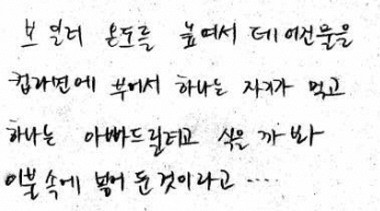 보일러 온도를 높여서 데어건물을
컵라면에 부어서 하나는 자기가 먹고
하나는 아빠드릴려고 식을 까 봐
이불 속에 넣어 둔 것이라고 ....